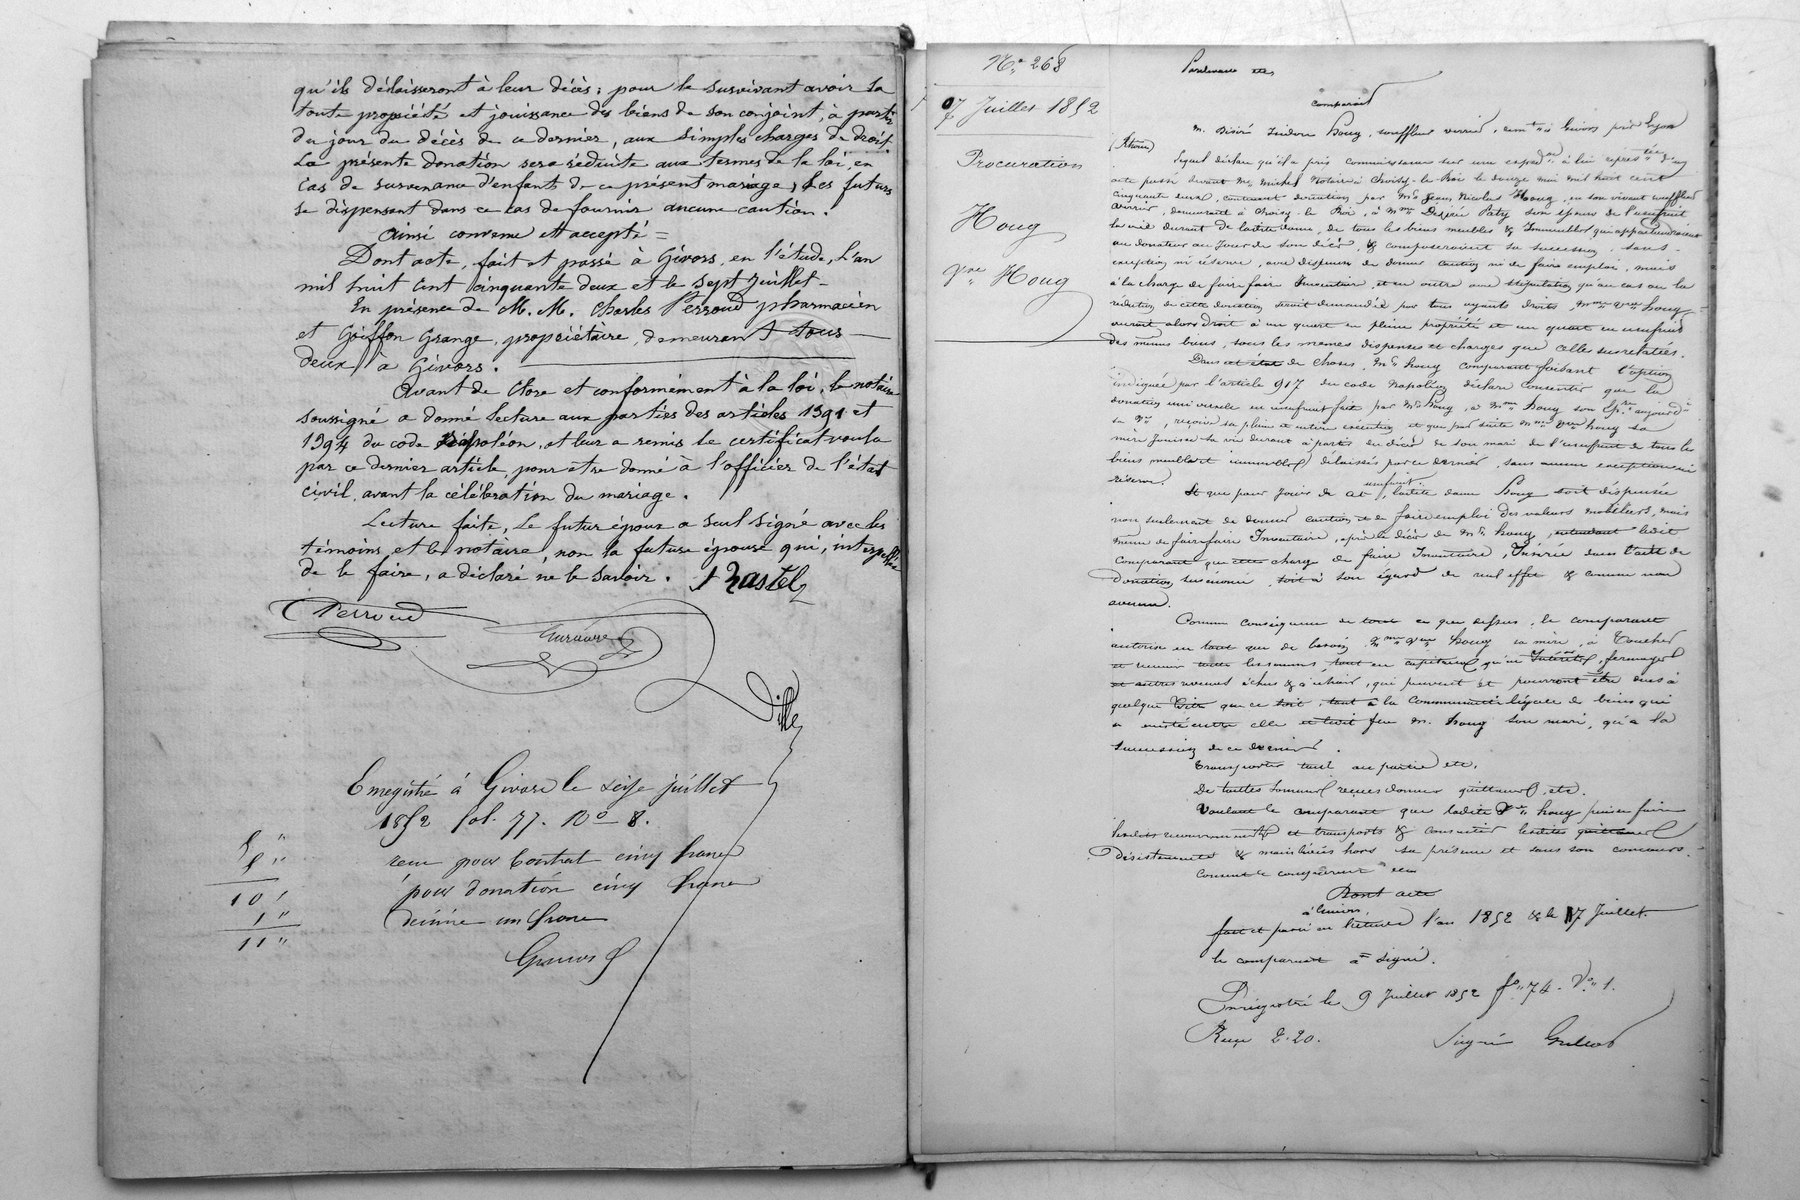 qu'ils délaisseront à leur décès ; pour le survivant avoir la
toute propriété et jouissance des biens de son conjoint, à partir
du jour du décès de ce dernier, aux simples charges de droit.
La présente donation sera réduite aux termes de la loi, en
cas de survenance d'enfants de ce présent mariage, les futurs
se dispensant dans ce cas de fournir aucune caution.
Ainsi convenu et accepté =
Dont acte, fait et passé à Givors, en l'étude, L'an
mil huit cent cinquante deux et le sept Juillet -
En présence de M. M. Charles Perroud pharmacien
et Goiffon Grange, propriétaire, demeurant tous
deux à Givors.
Avant de clore et conformément à la loi, le notaire
soussigné a donné lecture aux parties des articles 1391 et
1394 du code Napoléon, et leur a remis le certificat voulu
par ce dernier article, pour être donné à l'officier de l'état
civil, avant la célébration du mariage.
Lecture faite, Le futur époux a seul signé avec les
témoins et le notaire, non la future épouse qui, interpellée
de le faire, a déclaré ne le savoir.
Perroud
Ville
Enregistré à Givors le seize juillet
1852 fol. 77. No 8.
recu pour Contrat cinq francs
pour donation cinq francs
décime un franc
5 "
5 "
10 "
1 "
11 "
No 268
07 Juillet 1852
Procuration
Houg
Vve Houg
Pardevant etc
comparait
M. Désiré Isidore Houg, souffleur verrier, demt à Givors près Lyon
(Rhône)
Lequel déclare qu'il a pris connaissance sur une expédon à lui représtée d'un
acte passé devant Me Michel notaire à Choisy-le-Roi le douze mai mil huit cent
cinquante , contenant donation par Mr Jean Nicolas Houg, en son vivant souffleur
verrier, demeurant à Choisy-le-Roi, à Mme Désirée Paty son épouse de l'usufruit
sa vie durant de ladite dame, de tous les biens meubles & Immeubles qui appartiendraient
au donateur au jour de son décès & composeraient sa succession, sans
exception ni réserve, avec dispense de donner caution ni de faire emploi, mais
à la charge de faire faire Inventaire, et en outre avec stipulation qu'au cas où la
réduction de cette donation serait demandée par tous ayants droits, Mme Vve Houg
aurait alors droit à un quart en pleine propriété et un quart en usufruit
des mêmes biens, sous les mêmes dispenses et charges que celles susrelatées.
Dans cet état de choses, Mr houg comparant faisant l'option
indiquée par l'article 917 du code Napoléon déclare consentir que la
donation universelle en usufruit faite par Mr houg, à Mme houg son épse aujourd'
sa Vve, reçoive sa pleine et entière exécution et que par suite Mme Vve houg sa
mère jouisse sa vie durant à partir du décès de son mari de l'usufruit de tous les
biens meubles et immeubles délaissés par ce dernier, sans aucune exception ni
réserve.
Et que pour jouir de cet usufruit, ladite dame Houg soit dispensée
non seulement de donner caution et de faire emploi des valeurs mobilières, mais
même de faire faire Inventaire, après le décès de Mr houg, entendant ledit
comparant que cette charge de faire Inventaire, Insérée dans l'acte de
donation susénoncé, soit à son égard de nul effet & comme non
avenue.
Comme conséquence de tout ce que dessus, le comparant
autorise en tant que de besoin Mme Vve houg sa mère, à Toucher
et recevoir toutes les sommes, tout en capitaux qu'en Intérêts, fermages
et autres revenus échus & à échoir, qui peuvent et pourront être dus à
quelque titre que ce soit, tant à la Communauté légale de biens qui
a existé entre elle et ledit feu M. houg son mari, qu'à la
succession de ce dernier.
Transporter tout ou partie etc.
De toutes sommes reçues donner quittances, etc.
Voulant le comparant que ladite Ve houg puisse faire
lesdits recouvrements et transports & consentir lesdites quittances
désistements & mainlevées hors sa présence et sans son concours.
Dont acte
à Givors,
fait et passé en l'étude l'an 1852 & le 7 Juillet.
le comparant a signé.
Enregistré le 9 Juillet 1852 fo 74. Vo 1.
Reçu 2.20.
Signé